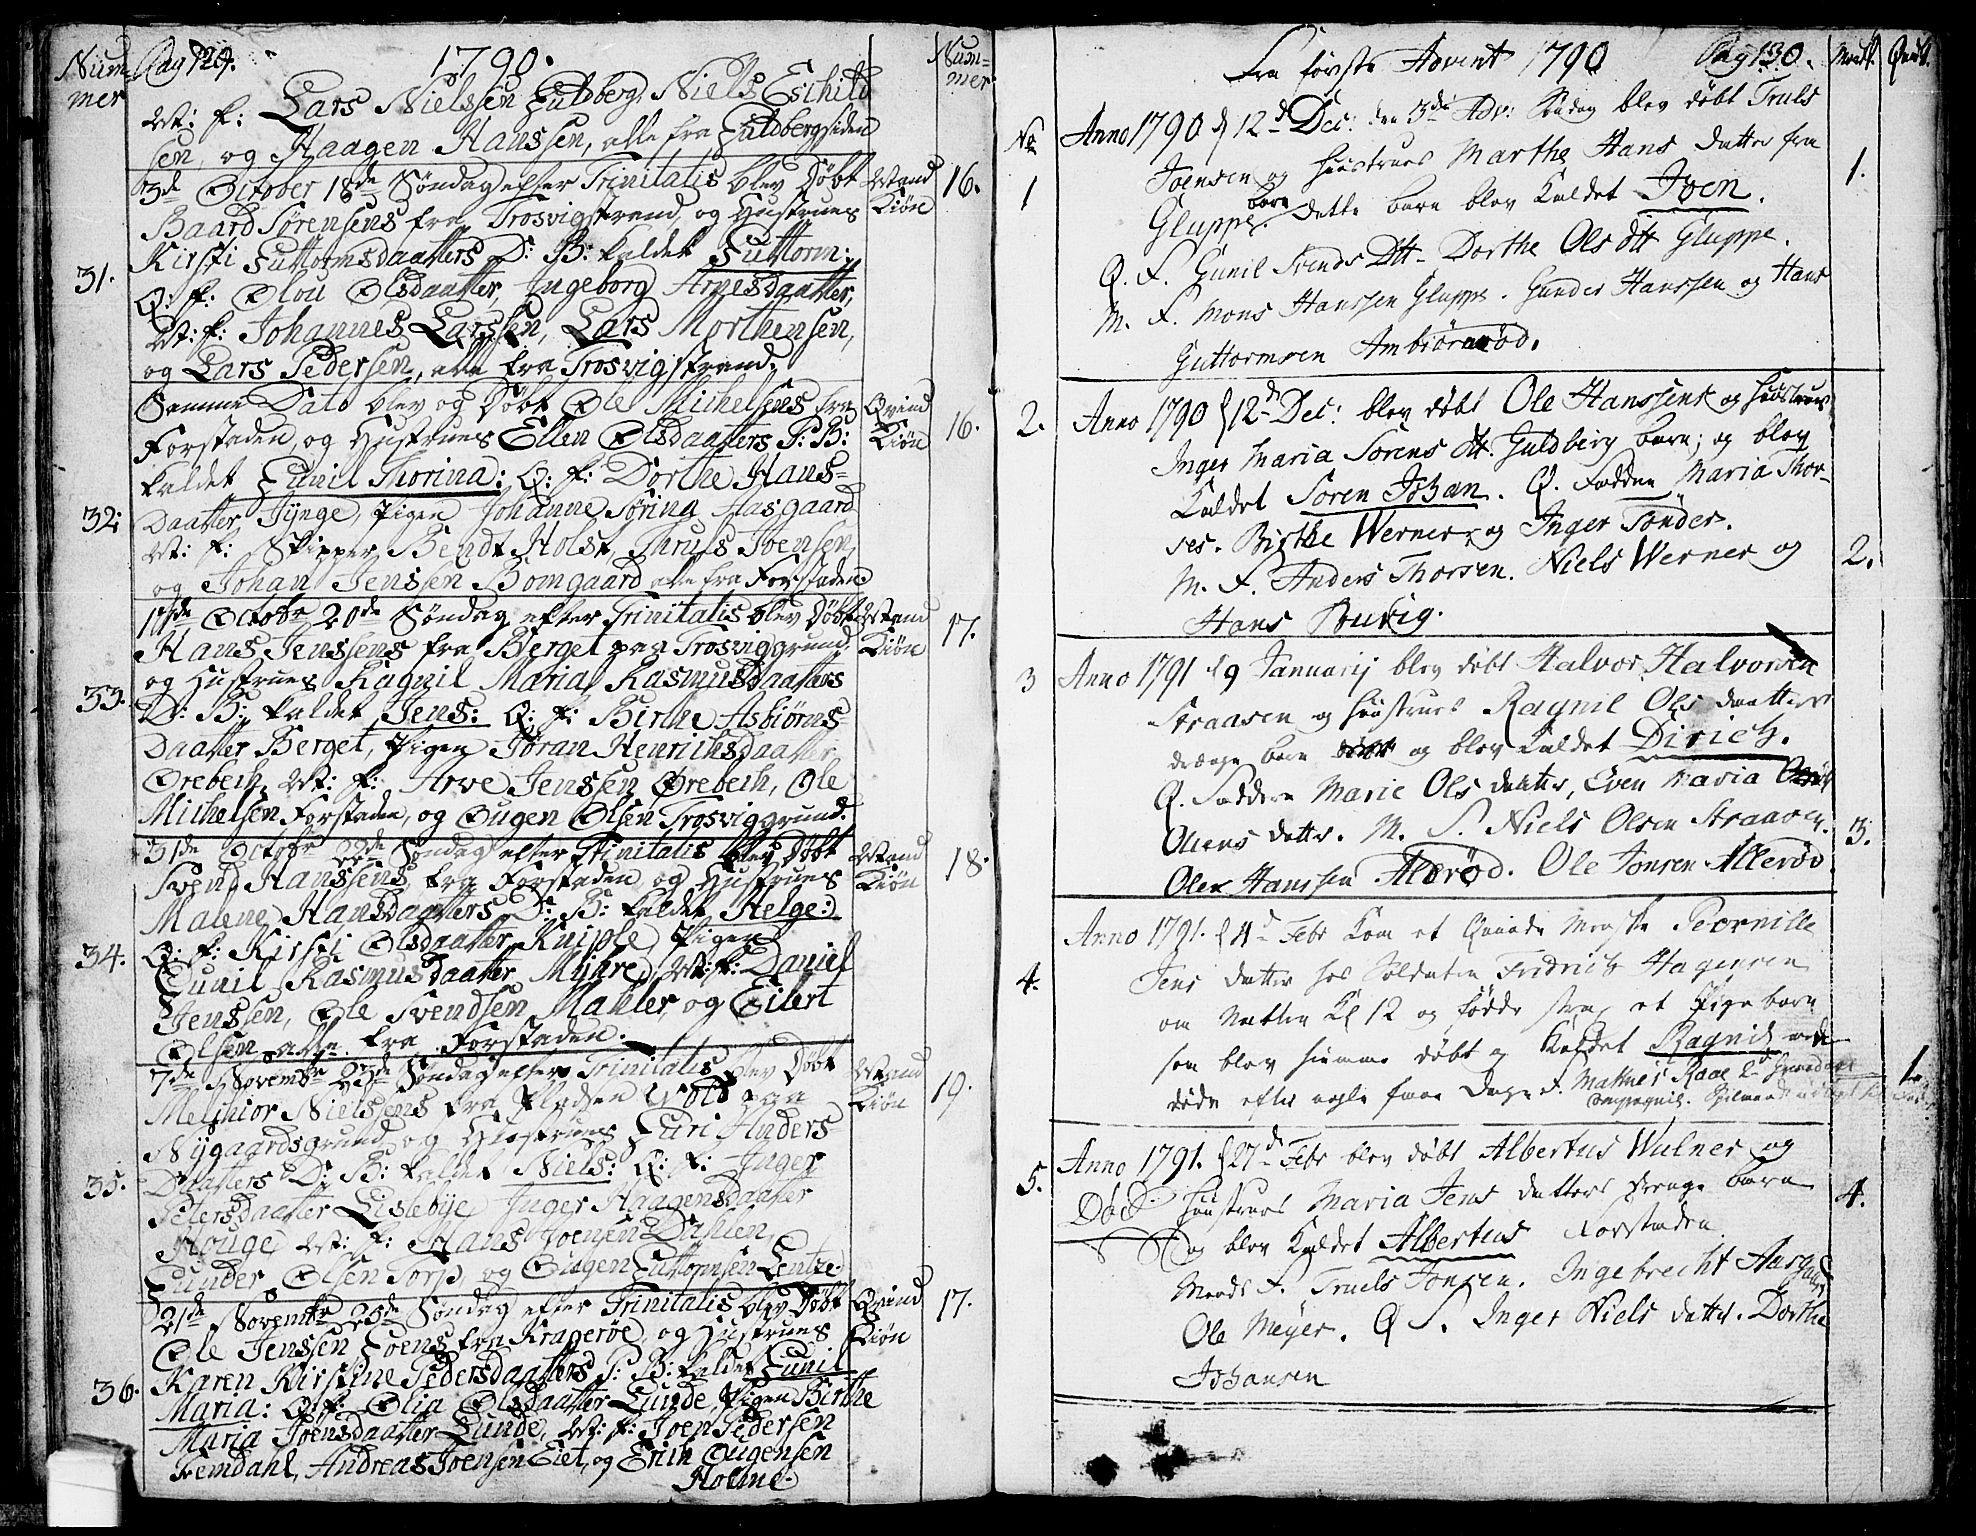 Num-
mer
Pag 129.
1790.
Num-
mer
M: f: Lars Nielssen Guldberg, Niels Eschild
sen, og Haagen Hanssen, alle fra Guldbergsiden
3de October 18de Søndag efter Trinitatis blev Døbt
Baard Sørensens fra Trosvigstrand, og Hustrues
Kirsti Guttormsdaatters D: B: kaldet Guttorm:
Q: f: Olou Olsdaatter, Ingeborg Arvesdaatter,
M: f: Johannes Larssen, Lars Morthensen,
og Lars Pedersen, alle fra Trosvigstrand.
31.
Mand
Kiøn
16.
Samme Dato blev og Døbt Ole Michelsens fra
Forstaden, og Hustrues Ellen Olsdaatters P: B:
kaldet Gunil Thorina: Q: f: Dorthe Hans-
Daatter, Pigen Johanne Søring Aasgaard
M: f: Skipper Bendt Holst, Thruls Joensen,
og Johan Jenssen Bomgaard alle fra Forstaden
32:
Qvind
Kiøn
16.
17de Octobr 20de Søndag efter Trinitatis blev Døbt
Hans Jenssens fra Berget paa Trosviggrund,
og Hustrues Ragnil Maria Rasmusdaatters
D: B: kaldet Jens: Q: f: Birthe Asbiørns-
Daatter Berget, Pigen Jøran Henrichsdaatter
Ørebech, M: f: Arve Jenssen Ørebech, Ole
Michelsen Forstaden, og Ougen Olsen Trosviggrund.
33.
Mand
Kiøn
17.
31de Octobr 22de Søndag efter Trinitatis blev Døbt
Svend Hanssens fra Forstaden og Hustrues
Malene Hansdaatters D: B: kaldet Helge:
Q: f: Kirsti Olsdaatter Kniple, Pigen
Gunil Rasmusdaatter Myhre, M: f: Daniel
Jenssen, Ole Svendsen Mahler og Eilert
Olsen alle fra Forstaden.
34.
Mand
Kiøn
18.
7de Novembr 23de Søndag efter Trinitatis blev Døbt
Melchior Nielssens fra Pladsen Holt paa
Nygaardsgrund, og Hustrues Guri Anders
Daatters D: B: kaldet Niels: Q: f: Inger
Petersdaatter Lislebye Inger Haagensdaatter
Houge, M: f: Hans Joensen Dahlen,
Gunder Olsen Torp, og Ougen Guttormsen Lentze.
35.
Mand
Kiøn
19.
21de Novembr 25de Søndag efter Trinitatis blev Døbt
Ole Jenssen Foens fra Kragerøe, og Hustrues
Karen Kirstine Pedersdaatters P: B: kaldet Gunil
Maria: Q: f: Olia Olsdaatter Lunde, Pigen Birthe
Maria Joensdaatter Lunde, M: f: Joen Pedersen
Femdahl, Andreas Joensen Eiet, og Erich Ougensen
Holme.
36.
Qvind
Kiøn
17.
Fra første Advent 1790
Pag 130.
Mandk.
Qvindk.
No
1
Anno 1790 d 12d Dec: den 3de Adv: Søndag blev døbt Truls
Joensen og Huustrues Marthe Hans datter fra
Gluppe. Barn dette barn blev kaldet Joen.
Q. F. Gunil Svends Dtt- Dorthe Ols dtt Gluppe.
M. F. Mons Hanssen Gluppe. Gunder Hanssen og Hans
Guttormsen Ambiørnrød.
1.
2.
Anno 1790 d 12d Dec: blev døbt Ole Hanssens og Huustrues
Inger Maria Sorens dtt. Guldberg barn; og blev
kaldet Soren Johan. Q. Faddere Maria Thor-
ses. Birthe Werner, og Inger Tønder.
M. F. Anders Thorsen. Niels Werner og
Hans
2.
3
Anno 1791 d 9 Januarij blev døbt Halvor Halvorsen
Straasen og Huustrues Ragnil Ols daatters
drænge barn og blev kaldet Dirich.
Q. Faddere Marie Ols datter, Even Maria
Olsens datter. M. F. Niels Olsen Straasen.
Oler Hanssen Alerød. Ole Jonsen Allerød
3.
4.
Anno 1791. d 4d Febr kom et Qvinde Menske Peornille
Jens datter hos Soldaten Fridrich Hagensen
om Natten Kl 12 og fødde strax et Pige barn
som blev hiemme døbt og kaldet Ragnil men
døde efter nogle faae Dage. F. Mathias Raae
Compagnie.
1.
5.
Anno 1791. d 27d Febr blev døbt Albertus Wulner og
Huustrues Maria Jens datters drenge barn
Død
og blev kaldet Albertus Forstaden
Mands F. Truels Jonsen. Ingebrecht Aasgaard
Ole Meyer. Q F. Inger Niels datter. Dorthe
Johansen
4.